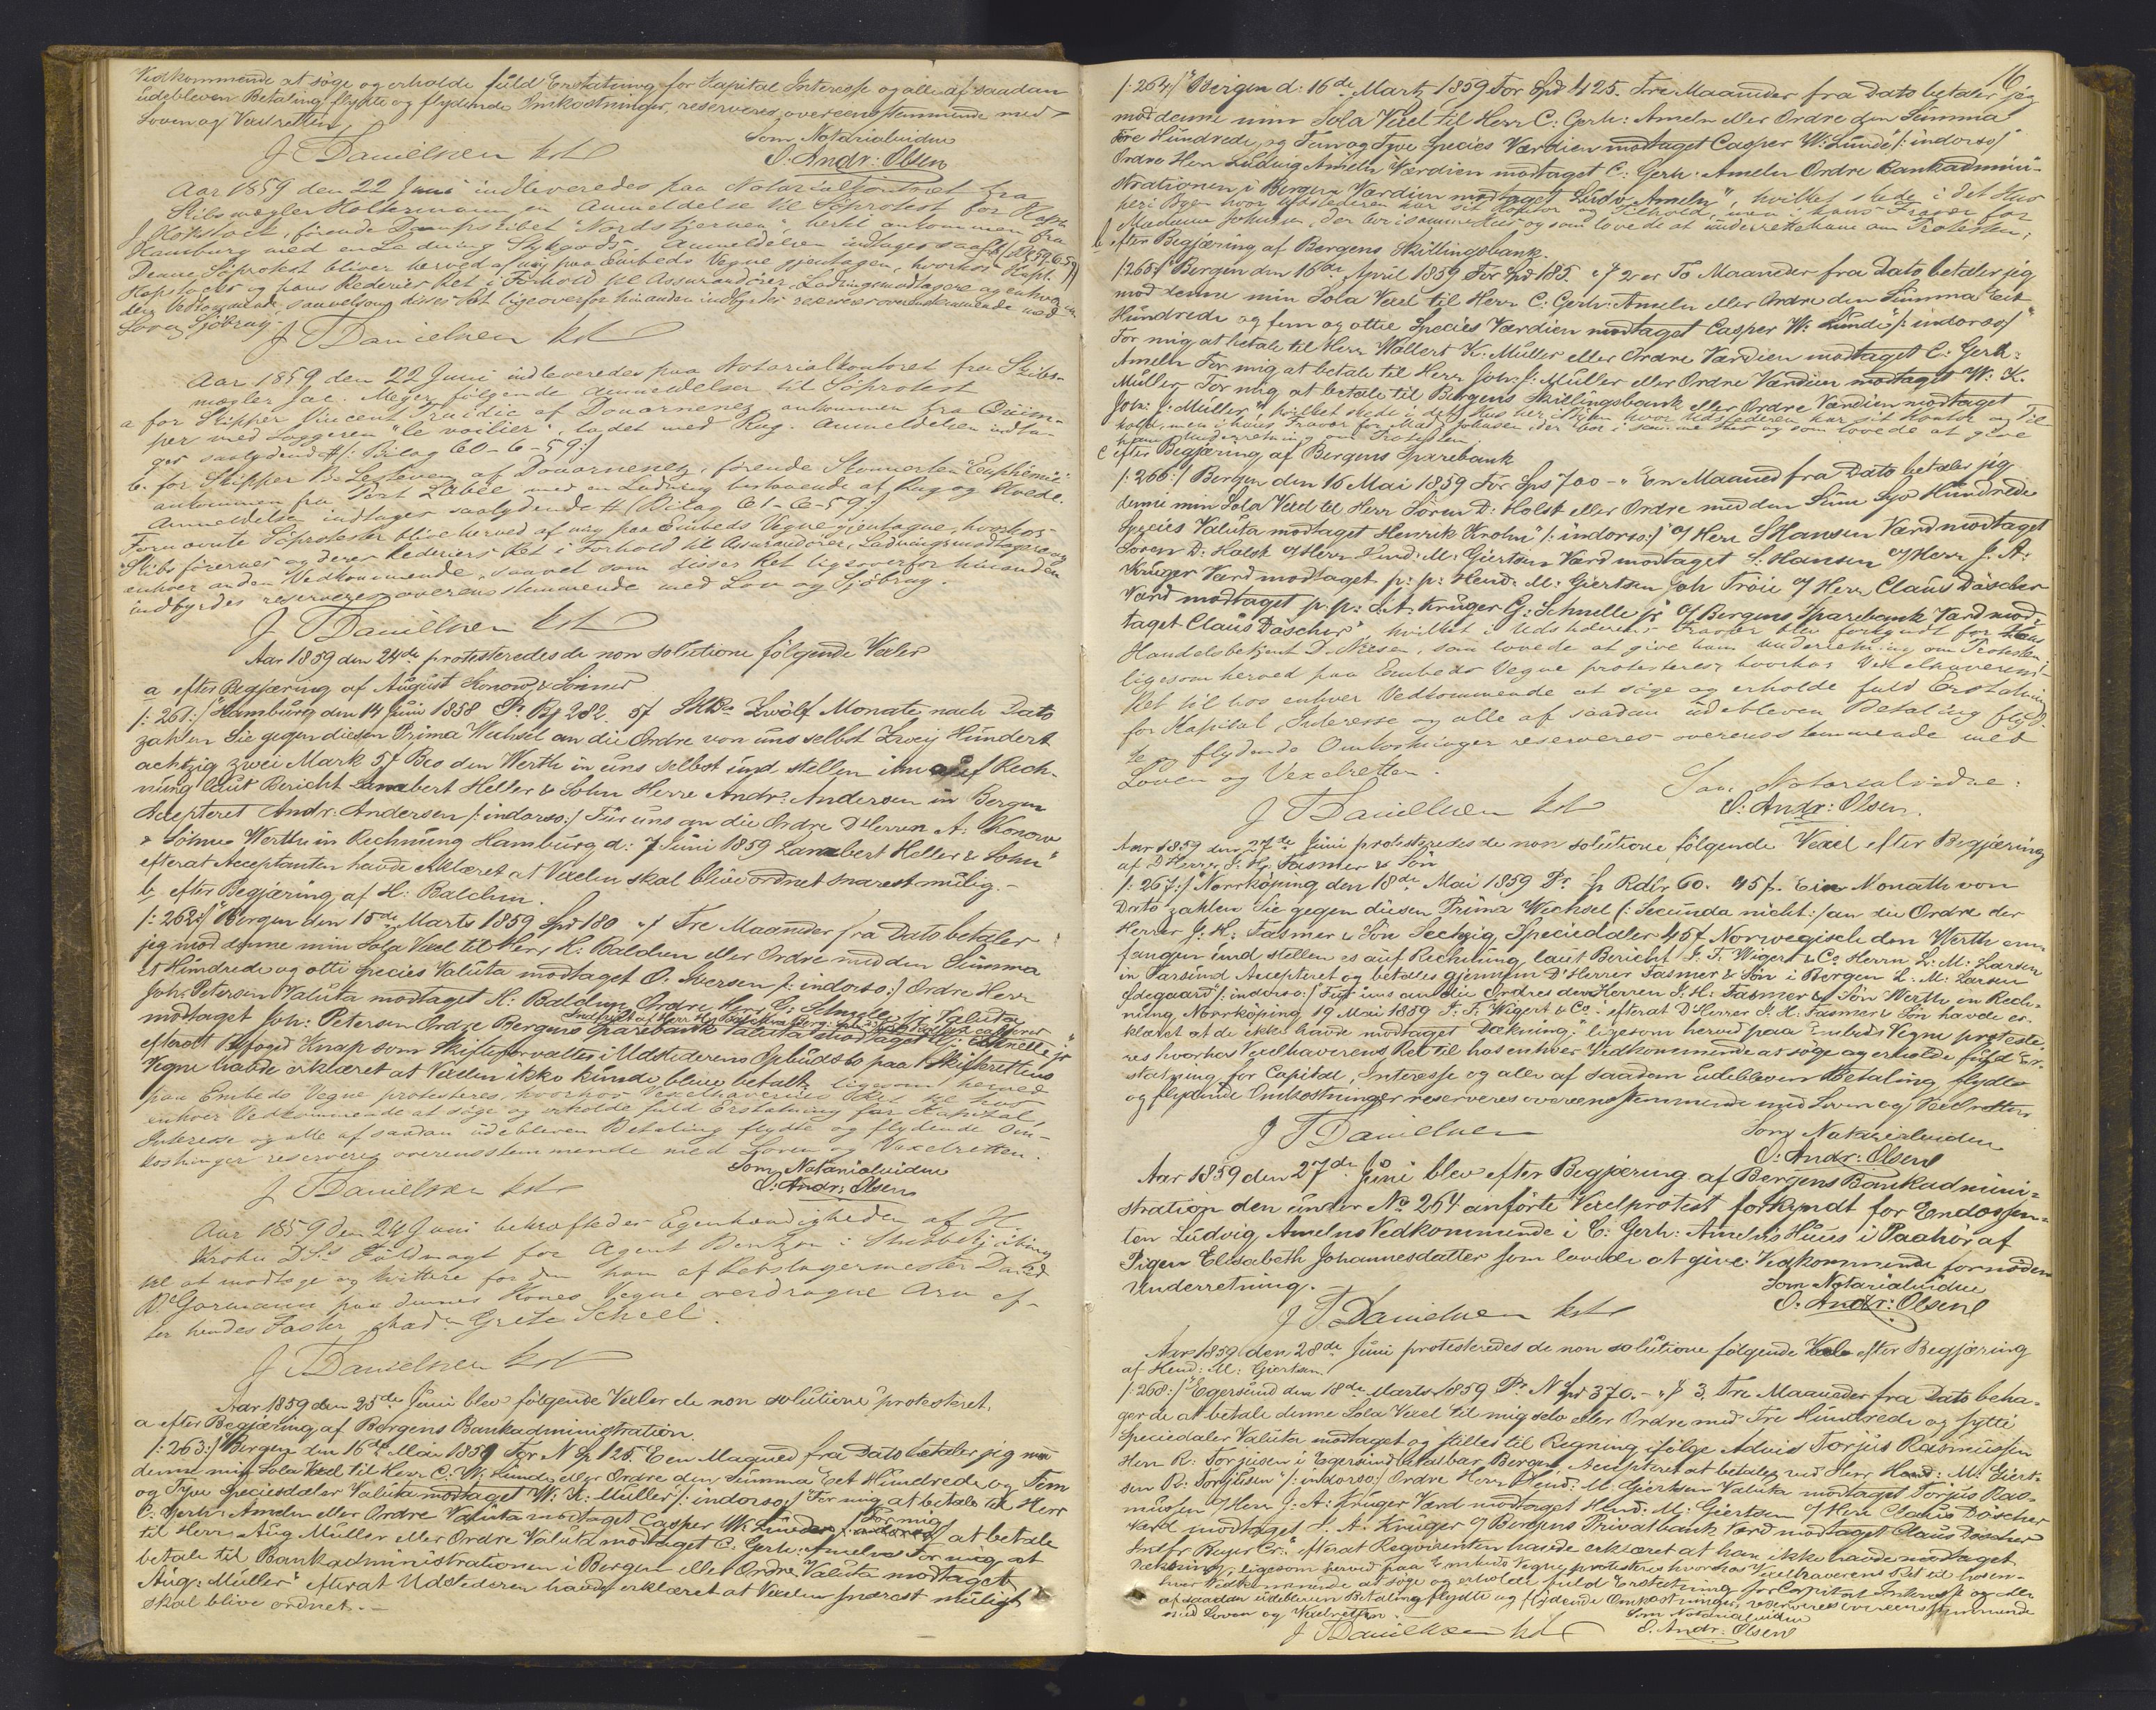 Vedkommende at söge og erholde fuld Erstatning for Kapital Interesse og alle af saadan
udebleven Betaling flydte og flydende Omkostninger, reserveres, overeensstemmende med
Loven og Vexelretten.
J Danielsen kst
Som Notarialvidne
O. Andr: Olsen
Aar 1859 den 22 Juni indleveredes paa Notarialkontoret fra
Skibsmægler Holtermann en Anmeldelse til Söprotest for Kapt.
J. Hopstock, förende Dampskibet Nordstjernen, hertil ankommen fra
Hamburg med en Ladning Stykgods. Anmeldelsen indtages saal. # (Bil. 59-6-59)
Denne Söprotest bliver herved af mig paa Embeds Vegne gjentagen, hvorhos Kapt.
Hopstocks og hans Rederies Ret i Forhold til Assurandörer, Ladningsmodtagere og enhver an-
den Vedkommende, saavelsom disses Ret ligeoverfor hinanden indbyrdes reserveres overensstemmende med
Lov og Sjöbrug.
J Danielsen kst
Aar 1859 den 22 Juni indleveredes paa Notarialkontoret fra Skibs-
mægler Jac. Meyer følgende Anmeldelser til Söprotest
a for Skipper Vincent Traidic af Douarnenez, ankommen fra Quim-
per med Loggeren "le voilier", ladet med Rug. Anmeldelsen indta-
ges saalydende # /: Bilag 60-6-59:/
b. for Skipper Be Lesteven af Douarnenez, förende Skonnerten "Euphémie"
ankommen fra Port Labbé med en Ladning bestaaende af Rug og Hvede.
Anmeldelse indtages saalydende # (Bilag 61-6-59:/
Fornævnte Söprotester blive herved af mig paa Embeds Vegne gjentagne, hvorhos
Skibsförernes og deres Rederiers Ret i Forhold til Assurandörer, Ladningsmodtagere og
enhver anden Vedkommende, saavel som disses Ret ligeoverfor hinanden
indbyrdes reserveres overensstemmende med Lov og Sjöbrug.
J Danielsen kst
Aar 1859 den 24de protesteredes de non solutione følgende Vexler
a efter Begjæring af August Konow & Sönner
/: 261:/ "Hamburg den 14 Juni 1858 Pr. Bf 282. 5f Zwölf Monate nach Dato
zahlen Sie gegen diesen Prima Wechsel an die Ordre von uns selbst Zwey Hundert
achtzig zwei Mark 5f Bco den Werth in uns selbst und stellen ihn auf Rech-
nung laut Bericht Lambert Heller & Sohn Herre Andr: Andersen in Bergen
Accepteret Andr. Andersen /: indorso:/ Für uns an die Ordre D'Herren A. Konow
& Sönner Werth in Rechnung Hamburg d: 7 Juni 1859 Lambert Heller & Sohn"
efterat Acceptanten havde erklæret at Vexelen skal blive ordnet snarest mulig.-
b efter Begjæring af H: Balchen.
/: 262:/ "Bergen den 15de Marts 1859 Spd 180 "f Tre Maaneder fra Dato betaler
jeg mod denne min Sola Vexel til Herr H: Balchen eller Ordre med den Summa
Et Hundrede og otti Species Valuta modtaget O. Iversen /: indorso:/ Ordre Herr
Joh: Petersen Valuta modtaget H: Balchen Ordre Hr. G: Schnelle jr Valuta
modtaget Joh: Petersen Ordre Bergens Sparebank Valuta modtaget G: Schnelle jr"
efterat Byfoged Knap som Skifteforvalter i Udstederens Opbudsbo paa Skifterettens
Vegne havde erklæret at Vexelen ikke kunde blive betalt, ligesom herved
paa Embeds Vegne protesteres, hvorhos Vexelhaverens Ret til hos
enhver Vedkommende at söge og erholde fuld Erstatning for Kapital
Interesse og alle af saadan udebleven Betaling flydte og flydende Om-
kostninger reserveres overensstemmende med Loven og Vexelretten.
J Danielsen kst
Som Notarialvidne
O: Andr: Olsen
Aar 1859 den 24 Juni bekræftedes Egenhændigheden af H
Krohn Ds Fuldmagt for Agent Bentzen i Stubbekjöbing
til at modtage og kvittere for den ham af Rebslagermester David
D. Gormann paa dennes Kones Vegne overdragne Arv ef-
ter hendes Faster Mad. Grete Scheel.
J Danielsen kst
Aar 1859 den 25de Juni blev følgende Vexler de non solutione protesteret,
a efter Begjæring af Bergens Bankadministration.
/: 263:/ "Bergen den 16de Mai 1859 For N Sp 125. Een Maaned fra Dato betaler jeg mod
denne min Sola Vexel til Herr C: W: Lunde eller Ordre den Summa Eet Hundrede og Fem
og Tyve Speciesdaler Valuta modtaget W: K: Müller" /: indorso:/ "For mig at betale til Herr
C: Gerh: Ameln eller Ordre Valuta modtaget Casper W: Lunde For mig at betale
til Herr Aug Müller eller Ordre Valuta modtaget C: Gerh: Ameln For mig at
betale til Bankadministrationen i Bergen eller Ordre Valuta modtaget
Aug: Müller" efterat Udstederen havde erklæret at Vexelen snarest muligt
skal blive ordnet.-
16
/: 264:/ "Bergen d: 16de Marts 1859 For Spd 425. Tre Maaneder fra Dato betaler jeg
mod denne min Sola Vexel til Herr C: Gerh: Ameln eller Ordre den Summa
Fire Hundrede og Fem og Tyve Species Værdien modtaget Casper W: Lunde" /: indorso:/
Ordre Herr Ludvig Ameln Værdien modtaget C: Gerh: Ameln Ordre Bankadmini-
strationen i Bergen Værdien modtaget Ludv: Ameln", hvilket skede i det Huus
her i Byen hvor Udstederen har sit Kontor og Tilhold, men i hans Fravær for
Madame Johnsen, der bor i samme Huus og som lovede at underrette ham om Protesten;
b efter Begjæring af Bergens Skillingsbank.
/: 265:/ "Bergen den 16de April 1859 For Spd 185. "f 2er To Maaneder fra Dato betaler jeg
mod denne min Sola Vexel til Herr C: Gerh: Ameln eller Ordre den Summa Eet
Hundrede og fem og ottie Species Værdien modtaget Casper W: Lunde" /: indorso:/
For mig at betale til Herr Wollert K: Müller eller Ordre Værdien modtaget C: Gerh:
Ameln For mig at betale til Herr Joh: J: Müller eller Ordre Værdien modtaget W: K.
Müller For mig at betale til Bergens Skillingsbank eller Ordre Værdien modtaget
Joh: J: Müller", hvilket skede i det Huus her i Byen hvor Udstederen har sit Kontor og Til-
hold, men i hans Fravær for Mad. Johnsen, der bor i samme Huus og som lovede at give
ham Underretning om Protesten.
c efter Begjæring af Bergens Sparebank
/: 266:/ Bergen den 16 Mai 1859 For Sps 700 - " Een Maaned fra Dato betaler jeg
denne min Sola Vexel til Herr Sören D: Holst eller Ordre med den Sum Syv Hundrede
Species Valuta modtaget Henrik Krohn" /: indorso:/ " o/ Herr S Hansen Værd modtaget
Sören D: Holst o/ Herr Hend: M: Giertsen Værd modtaget S: Hansen o/ Herr J: A:
Krüger Værd modtaget p: p: Hend: M: Giertsen Joh Tröie o/ Herr Claus Däscher
Værd modtaget p. p: J. A. Krüger G: Schnelle jr o/ Bergens Sparebank Værd mod-
taget Claus Däscher", hvilket i Udstederens Fravær blev forkyndt for Hans
Handelsbetjent D. Nilsen, som lovede at give ham Underretning om Protesten
ligesom herved paa Embeds Vegne protesteres, hvorhos Vexelhaverens
Ret til hos enhver Vedkommende at söge og erholde fuld Erstatning
for Kapital Interesse og alle af saadan udebleven Betaling flyd-
te flydende Omkostninger reserveres overensstemmende med
Loven og Vexelretten.
J Danielsen kst
Som Notarialvidne:
O: Andr: Olsen.
Aar 1859 den 27de Juni protesteredes de non solutione følgende Vexel efter Begjæring
af D'Herrer J. H: Fasmer & Sön
/: 267:/ "Norrköping den 18de Mai 1859 Pr Sp Rdlr 60. 45f. Ein Monath von
Dato zahlen Sie gegen diesen Prima Wechsel (: Secunda nicht:/ an die Ordre der
Herrer J. H: Fasmer & Sön Sechzig Speciedaler 45f Norwegisch den Werth em-
fangen und stellen es auf Rechnung laut Bericht J. F. Wigert & Co. Herrn L: M: Larsen
in Farsund Accepteret og betales gjennem D'Herrer Fasmer & Sön i Bergen L. M: Larsen
Ödegaard" /: indorso:/ "Für uns an die Ordres der Herren J. H: Fasmer & Sön Werth in Rech-
nung, Norrköping 19 Mai 1859 J. F. Wigert & Co." efterat D'Herrer J. H: Fasmer & Sön havde er-
klæret at de ikke havde modtaget Dækning; ligesom herved paa Embeds Vegne proteste-
res hvorhos Vexelhaverens Ret til hos enhver Vedkommende at söge og erholde fuld Er-
statning for Capital, Interesse og alle af saadan udebleven Betaling flydte
og flydende Omkostninger reserveres overeensstemmende med Loven og Vexelretten
J Danielsen
Som Notarialvidne
O: Andr: Olsen
Aar 1859 den 27de Juni blev efter Begjæring af Bergens Bankadmini-
stration den under No 264 anförte Vexelprotest forkyndt for Endossen-
ten Ludvig Amelns Vedkommende i C: Gerh: Amelns Huus i Paahör af
Pigen Elisabeth Johannesdatter som lovede at give Vedkommende fornöden
Underretning.
J Danielsen kst
Som Notarialvidne
O. Andr: Olsen
Aar 1859 den 28de Juni protesteredes de non solutione følgende Vexel efter Begjæring
af Hend: M: Giertsen
/: 268:/ "Egersund den 18de Marts 1859 Pr N Spd 370.- "f 3. Tre Maaneder fra Dato beha-
ger de at betale denne Sola Vexel til mig selv eller Ordre med Tre Hundrede og sytti
Speciedaler Valuta modtaget og stilles til Regning ifølge Advis Torjus Rasmussen
Herr R: Torjusen i Egersund betalbar Bergen Accepteret at betales ved Herr Hend: M: Giert-
sen R: Torjusen" /: indorso:/ Ordre Herr Hend: M: Giertsen Valuta modtaget Torjus Ras-
mussen o/ Herr J: A: Krüger Værd modtaget Hend: M: Giertsen o/ Herr Claus Däscher
Værd modtaget J. A. Krüger o/ Bergens Privatbank Værd modtaget Claus Däscher
efterat Reqvirenten havde erklæret at han ikke havde modtaget
Dækning, ligesom herved paa Embeds Vegne protesteres hvorhos Vexelhaverens Ret til hos en-
hver Vedkommende at söge og erholde fuld Erstatning for Capital Interesse og alle
af saadan udebleven Betaling flydte og flydende Omkostninger reserveres overeensstemmende
med Loven og Vexelretten.
J Danielsen kst
Som Notarialvidne
O. Andr: Olsen